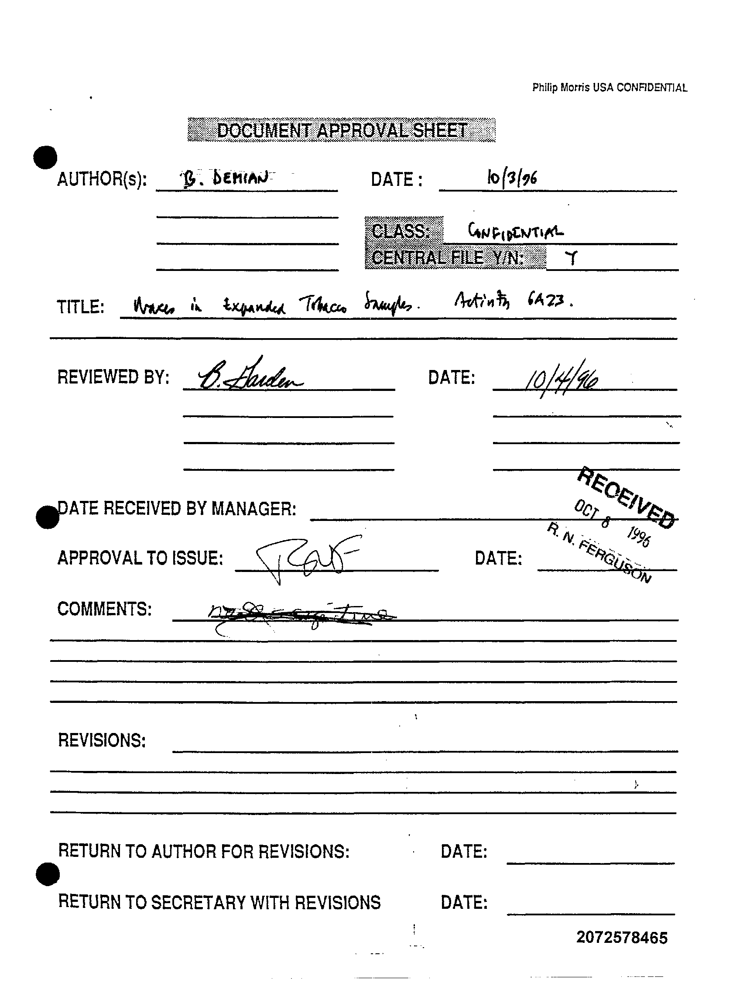 Philip Morris USA CONFIDENTIAL
DOCUMENT APPROVAL SHEET
AUTHOR(s): B. DEMIAN DATE: 10/3/96
CLASS: CONFIDENTIAL
CENTRAL FILE Y/N: Y
TITLE: Waxes in Expanded Tobacco Samples. Activity 6A23.
REVIEWED BY: B. Harden DATE: 10/4/96
RECEIVED
DATE RECEIVED BY MANAGER:
OCT 8 1996
R. N. FERGUSON
APPROVAL TO ISSUE: DATE:
COMMENTS:
REVISIONS:
RETURN TO AUTHOR FOR REVISIONS: DATE:
RETURN TO SECRETARY WITH REVISIONS DATE:
2072578465